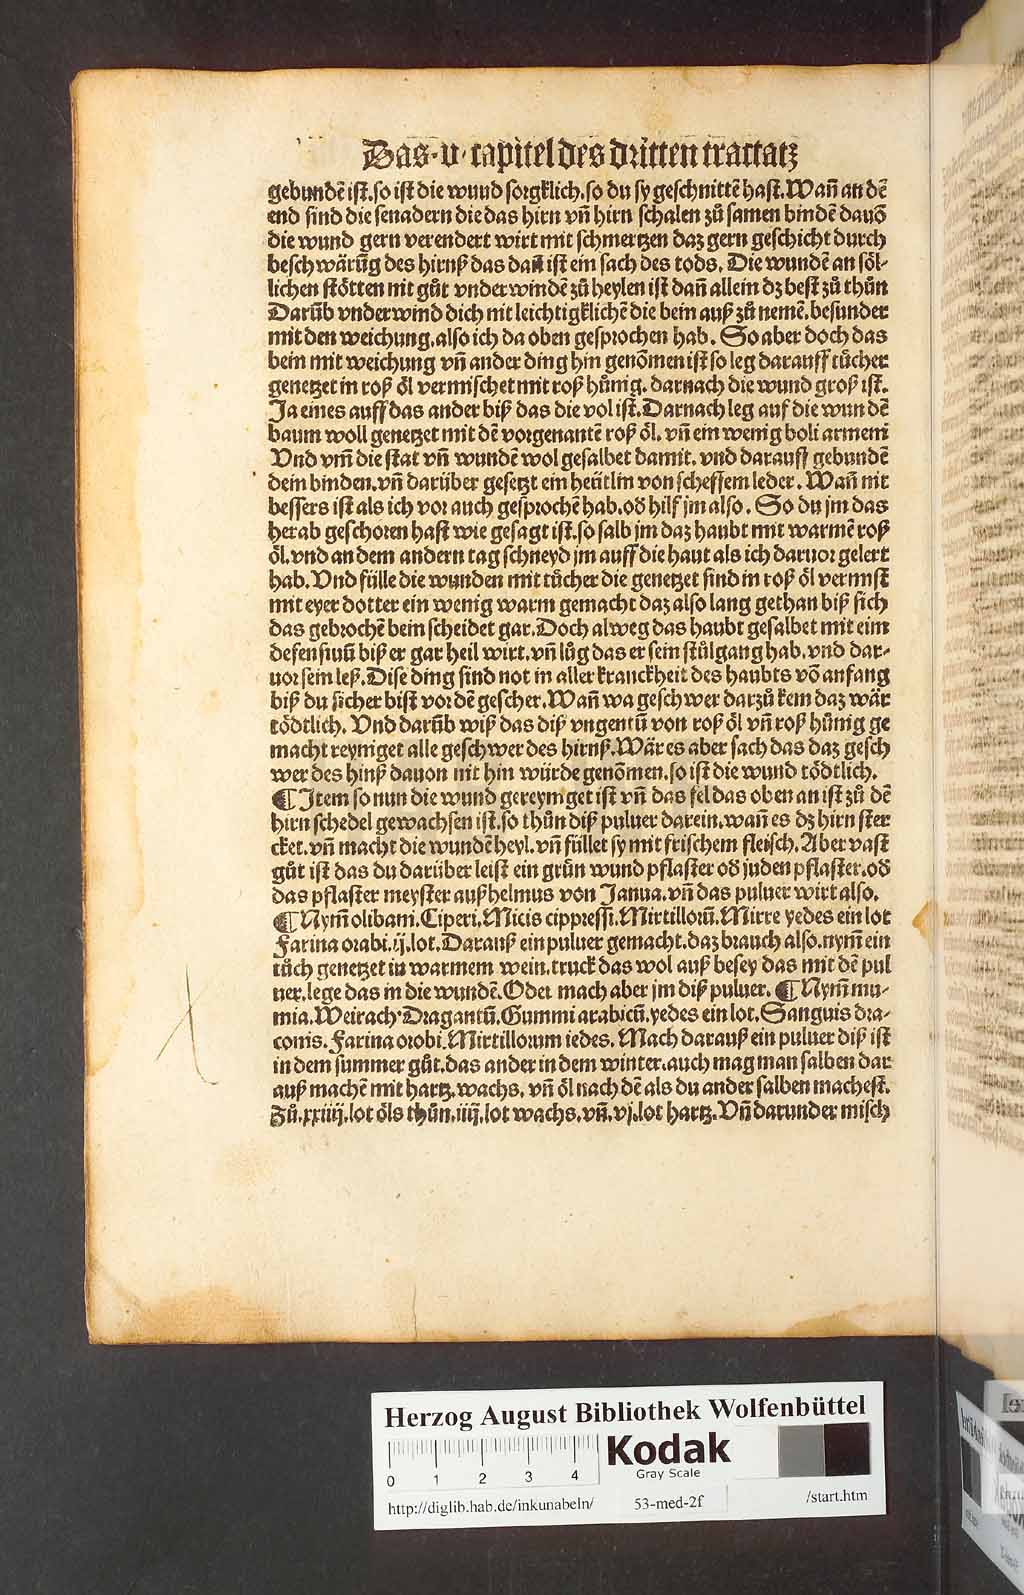 Das·v·capitel des dritten tractatz
gebundē ist.so ist die wund sorgklich.so du sy geschnittē hast.Wañ an dē
end sind die senadern die das hirn vñ hirn schalen zů samen bindē dauō
die wund gern verendert wirt mit schmertzen daz gern geschicht durch
beschwärūg des hirnß das dañ ist ein sach des tods. Die wundē an söl-
lichen stötten nit gůt vnderwindē zů heylen ist dañ allein dz best zů thůn
Darūb vnderwind dich nit leichtigklichē die bein auß zů nemē.besunder
mit den weichung.also ich da oben gesprochen hab. So aber doch das
bein mit weichung vñ ander ding hin genōmen ist so leg darauff tůcher
genetzet in roß öl vermischet mit roß hůnig. darnach die wund groß ist.
Ja eines auff das ander biß das die vol ist.Darnach leg auf die wundē
baum woll genetzet mit dē vorgenantē roß öl. vñ ein wenig boli armeni
Vnd vm̄ die stat vñ wundē wol gesalbet damit. vnd darauff gebundē
dein binden.vñ darüber gesetzt ein heütlin von scheffem leder. Wañ nit
bessers ist als ich vor auch gesprochē hab.od hilf jm also. So du jm das
herab geschoren hast wie gesagt ist.so salb jm daz haubt mit warmē roß
öl.vnd an dem andern tag schneyd jm auff die haut als ich daruor gelert
hab.Vnd fülle die wunden mit tůcher die genetzet sind in roß öl vermist
mit eyer dotter ein wenig warm gemacht daz also lang gethan biß sich
das gebrochē bein scheidet gar.Doch alweg das haubt gesalbet mit eim
defensiuū biß er gar heil wirt.vñ lůg das er sein stůlgang hab.vnd dar-
uor sein leß.Dise ding sind not in aller kranckheit des haubts vō anfang
biß du sicher bist vor dē gescher.Wañ wa geschwer darzů kem daz wär
tödtlich. Vnd darūb wiß das diß vngentū von roß öl vñ roß hůnig ge
macht reyniget alle geschwer des hirnß.Wär es aber sach das daz gesch
wer des hinß dauon nit hin würde genōmen.so ist die wund tödtlich.
¶ Item so nun die wund gereyniget ist vñ das fel das oben an ist zů dē
hirn schedel gewachsen ist.so thůn diß puluer darein.wañ es dz hirn ster
cket.vñ macht die wundē heyl.vñ füllet sy mit frischem fleisch.Aber vast
gůt ist das du darüber leist ein grůn wund pflaster od juden pflaster.od
das pflaster meyster außhelmus von Janua.vñ das puluer wirt also.
¶ Nym̄ olibani.Ciperi.Micis cippressi.Mirtillorū.Mirre yedes ein lot
Farina orabi.ij.lot.Darauß ein puluer gemacht.daz brauch also.nym̄ ein
tůch genetzet in warmem wein.truck das wol auß besey das mit dē pul
uer.lege das in die wundē.Oder mach aber jm diß puluer. ¶ Nym̄ mu-
mia.Weirach·Dragantū.Gummi arabicū.yedes ein lot.Sanguis dra-
conis.Farina orobi.Mirtillorum iedes. Mach darauß ein puluer diß ist
in dem summer gůt.das ander in dem winter.auch mag man salben dar
auß machē mit hartz.wachs. vñ öl nach dē als du ander salben machest.
Zů.xxiiij.lot öls thůn.iiij.lot wachs.vñ.vj.lot hartz.Vñ darunder misch
Herzog August Bibliothek Wolfenbüttel
0 1 2 3 4
Kodak
Gray Scale
http://diglib.hab.de/inkunabeln/ 53-med-2f /start.htm